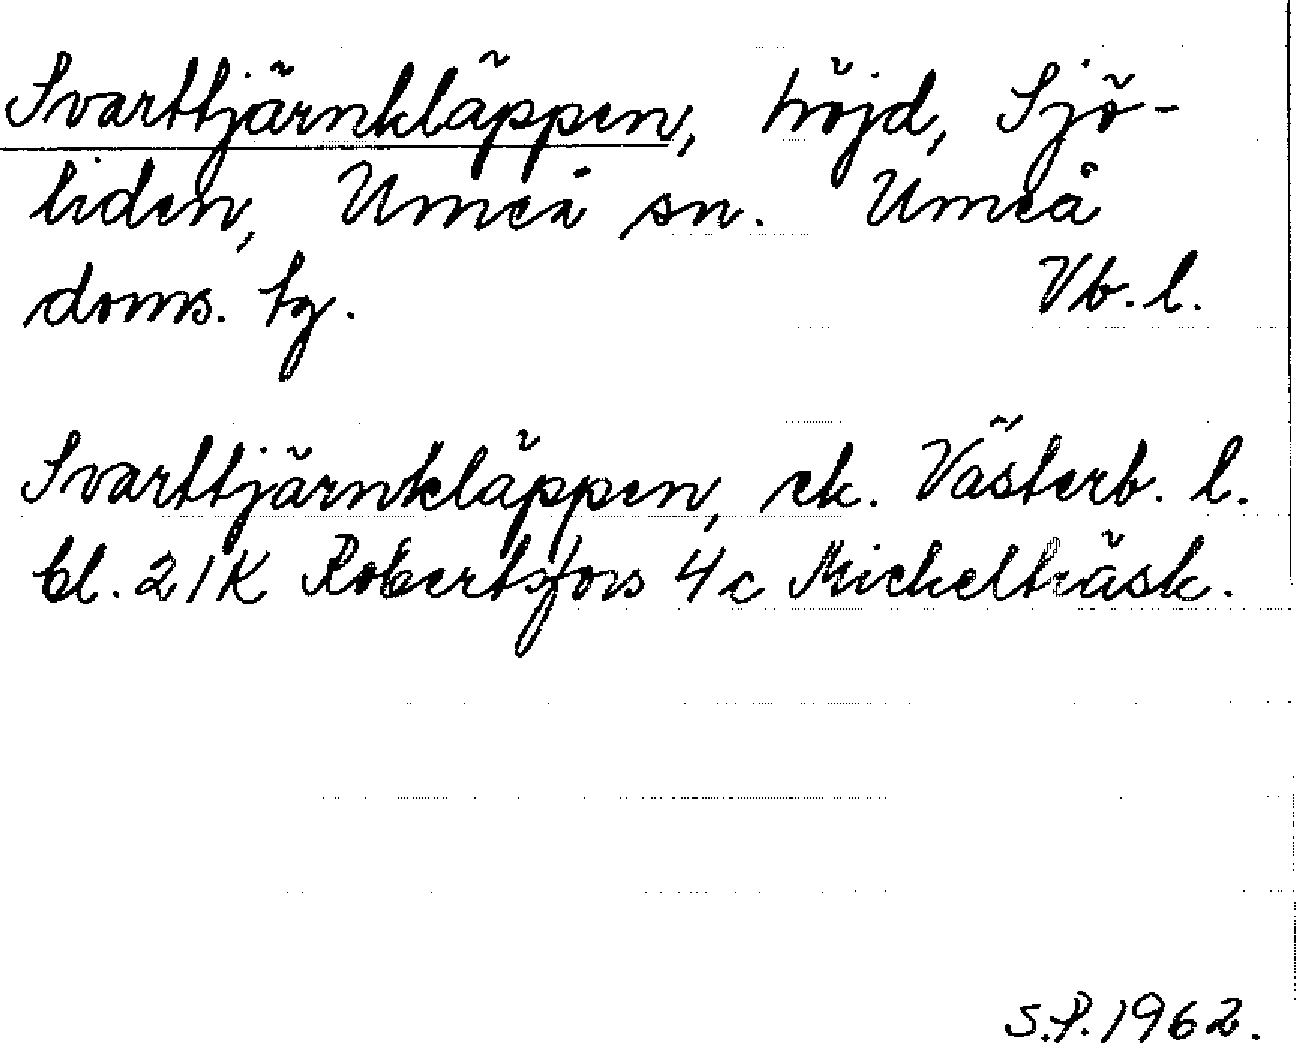 Svarttjärnkläppen, höjd, Sjö-
liden, Umeå sn. Umeå
doms. tg. Vb. l.
Svarttjärnkläppen, ek. Västerb. l.
bl. 21K Robertsfors 4c Mickelträsk.
S.P. 1962.